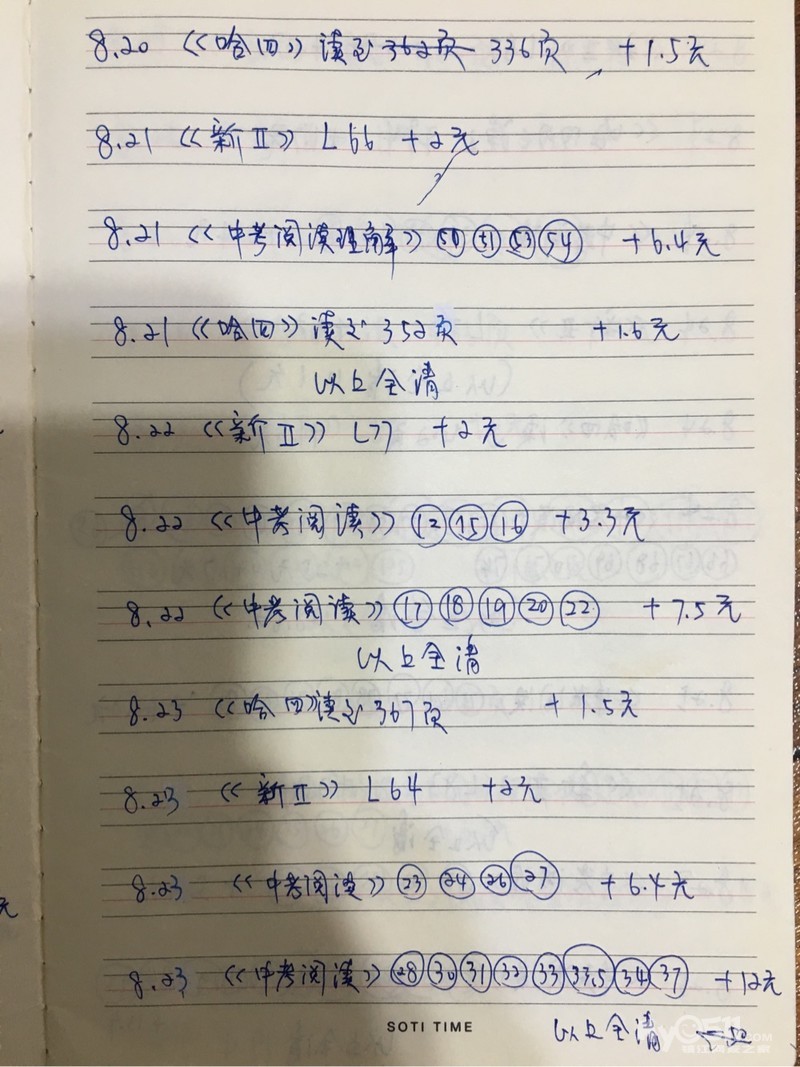 8.20 《哈四》读至 362页 336页 +1.5元
8.21 《新Ⅱ》 L66 +2元
8.21 《中考阅读理解》 50 51 53 54 +6.4元
8.21 《哈四》读至 352页 +1.6元
以上全清
8.22 《新Ⅱ》 L77 +2元
8.22 《中考阅读》 12 15 16 +3.3元
8.22 《中考阅读》 17 18 19 20 22 +7.5元
以上全清
8.23 《哈四》读至 367页 +1.5元
8.23 《新Ⅱ》 L64 +2元
8.23 《中考阅读》 23 24 26 27 +6.4元
8.23 《中考阅读》 28 30 31 32 33 33.5 34 37 +12元
SOTI TIME
以上全清
元